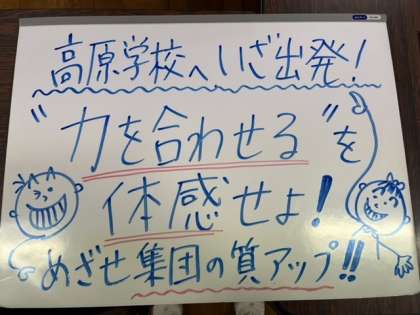 高原学校へいざ出発!
"力を合わせる"を
体感せよ!
めざせ集団の質アップ!!